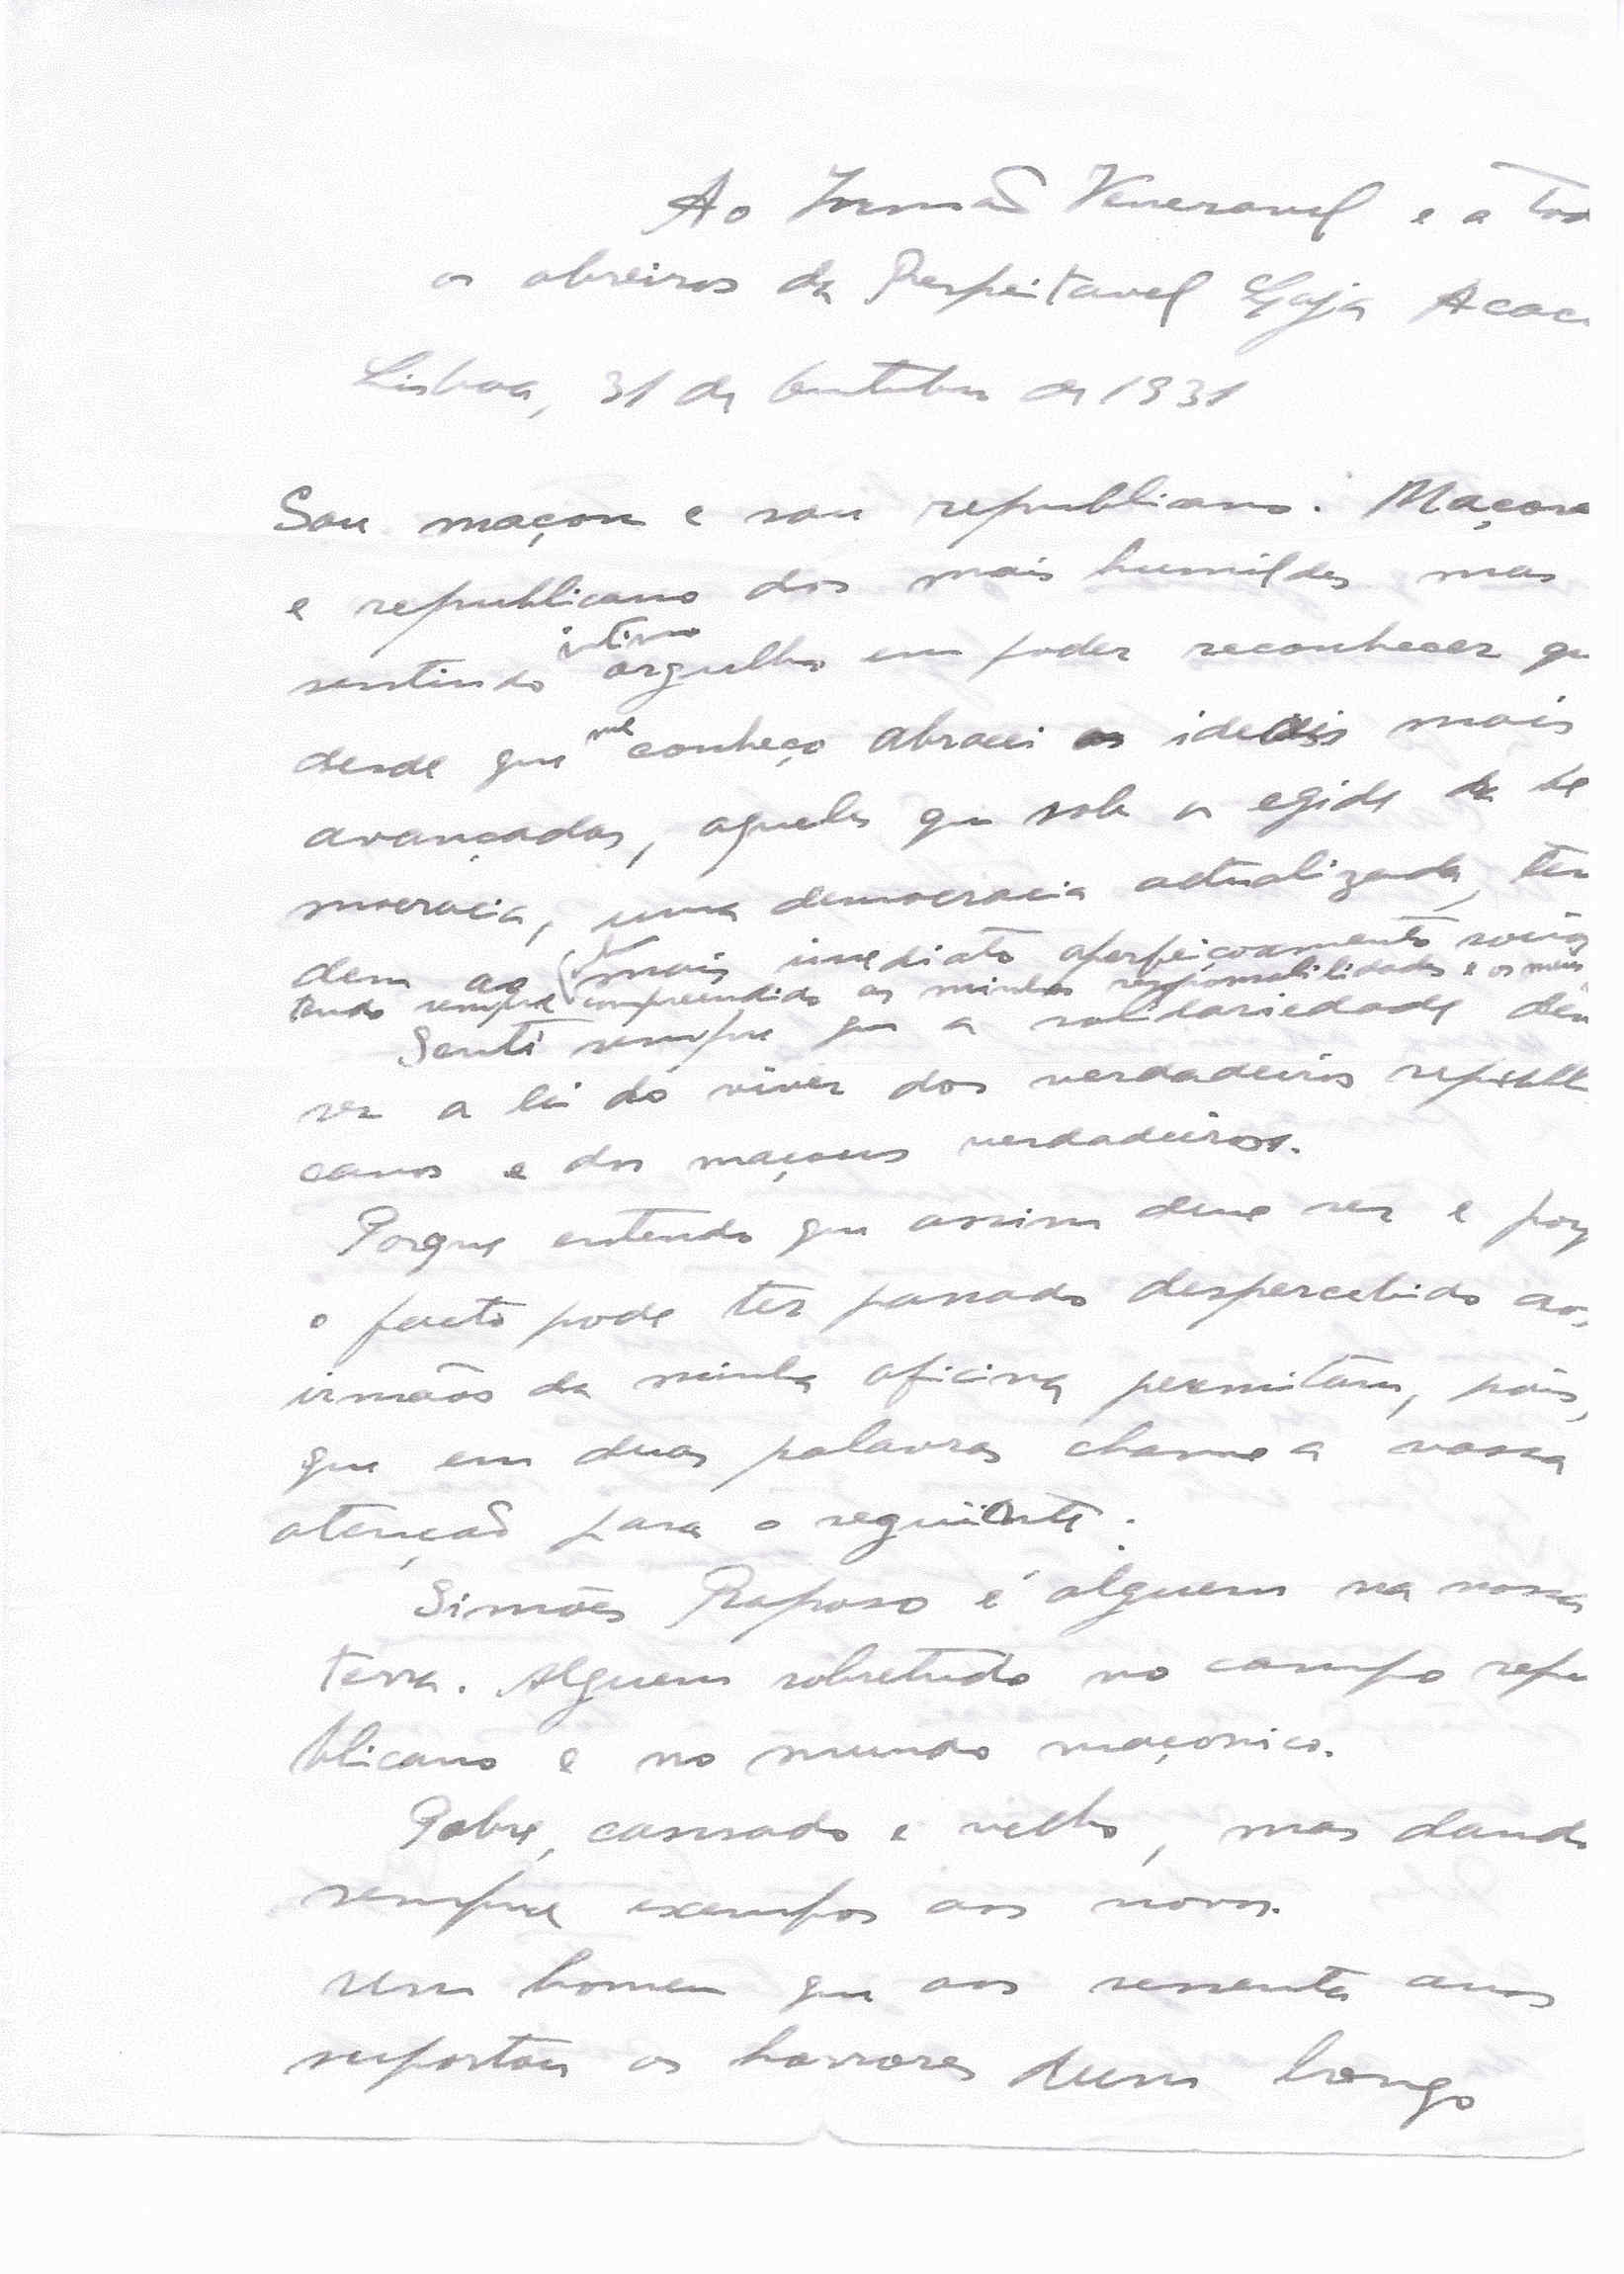 Ao Irmaõ Veneravel e a tod
os obreiros da Respeitavel Loja Acac
Lisboa, 31 de Outubro de 1931
Sou maçon e sou republicano. Maçon
e republicano dos mais humildes mas
sentindo intimo orgulho em poder reconhecer qu
desde que me conheço abracei os ideais mais
avançados, aqueles que sob a egide da de
mocracia, uma democracia actualizada, ten
dem ao mais imediato aperfeiçoamento social
tendo sempre compreendido as minhas responsabilidades e os meus
Senti sempre que a solidariedade deve
ser a lei do viver dos verdadeiros republi
canos e dos maçons verdadeiros.
Porque entendo que assim deve ser e porq
o facto pode ter passado despercebido aos
irmãos da minha oficina permitam, pois,
que em duas palavras chame a vossa
atençaõ para o seguinte:
Simões Raposo é alguem na nossa
terra. Alguem sobretudo no campo repu
blicano e no mundo maçonico.
Pobre, cansado e velho, mas dando
sempre exempos aos novos.
Um homem que aos sessenta anos
suportou os horrores dum longo